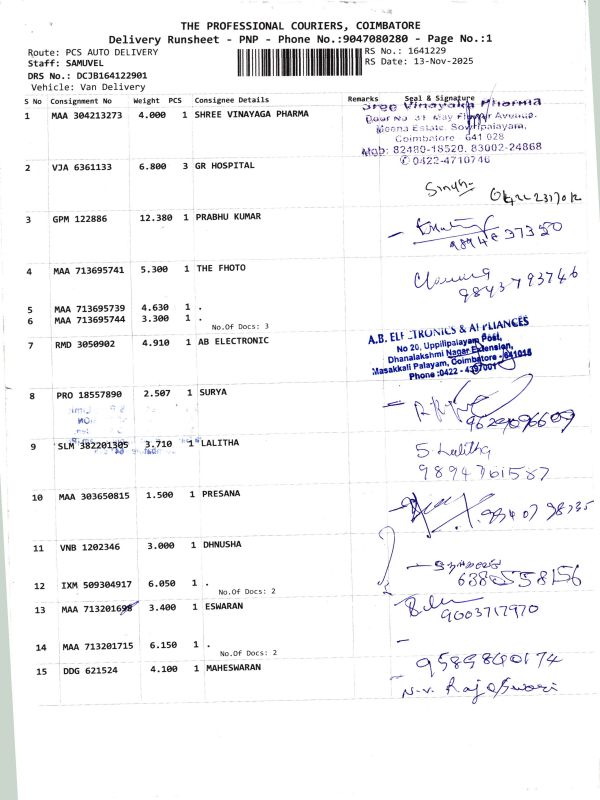 THE PROFESSIONAL COURIERS, COIMBATORE
Delivery Runsheet - PNP - Phone No.:9047080280 - Page No.:1
Route: PCS AUTO DELIVERY
RS No.: 1641229
Staff: SAMUVEL
RS Date: 13-Nov-2025
DRS No.: DCJB164122901
Vehicle: Van Delivery
S No Consignment No Weight PCS Consignee Details Remarks Seal & Signature
1 MAA 304213273 4.000 1 SHREE VINAYAGA PHARMA
Sree Vinayaka Pharmia
Avenue,
Meena Estate, Sowripalayam,
Coimbatore 641 028
Mob: 82480-18520, 83002-24868
✆ 0422-4710746
2 VJA 6361133 6.800 3 GR HOSPITAL
3 GPM 122886 12.380 1 PRABHU KUMAR
4 MAA 713695741 5.300 1 THE FHOTO
9843793746
5 MAA 713695739 4.630 1 .
6 MAA 713695744 3.300 1 .
No.Of Docs: 3
7 RMD 3050902 4.910 1 AB ELECTRONIC
A.B. ELECTRONICS & APPLIANCES
No 20, Uppilipalayam Post,
Dhanalakshmi Nagar Extension,
Masakkali Palayam, Coimbatore - 641015
Phone :0422 -
8 PRO 18557890 2.507 1 SURYA
9629096609
9 SLM 382201305 3.710 1 LALITHA
S. Lalitha
9894761587
10 MAA 303650815 1.500 1 PRESANA
11 VNB 1202346 3.000 1 DHNUSHA
6380558156
12 IXM 509304917 6.050 1 .
No.Of Docs: 2
13 MAA 713201698 3.400 1 ESWARAN
9003717970
14 MAA 713201715 6.150 1 .
No.Of Docs: 2
15 DDG 621524 4.100 1 MAHESWARAN
N.V. Rajeswari